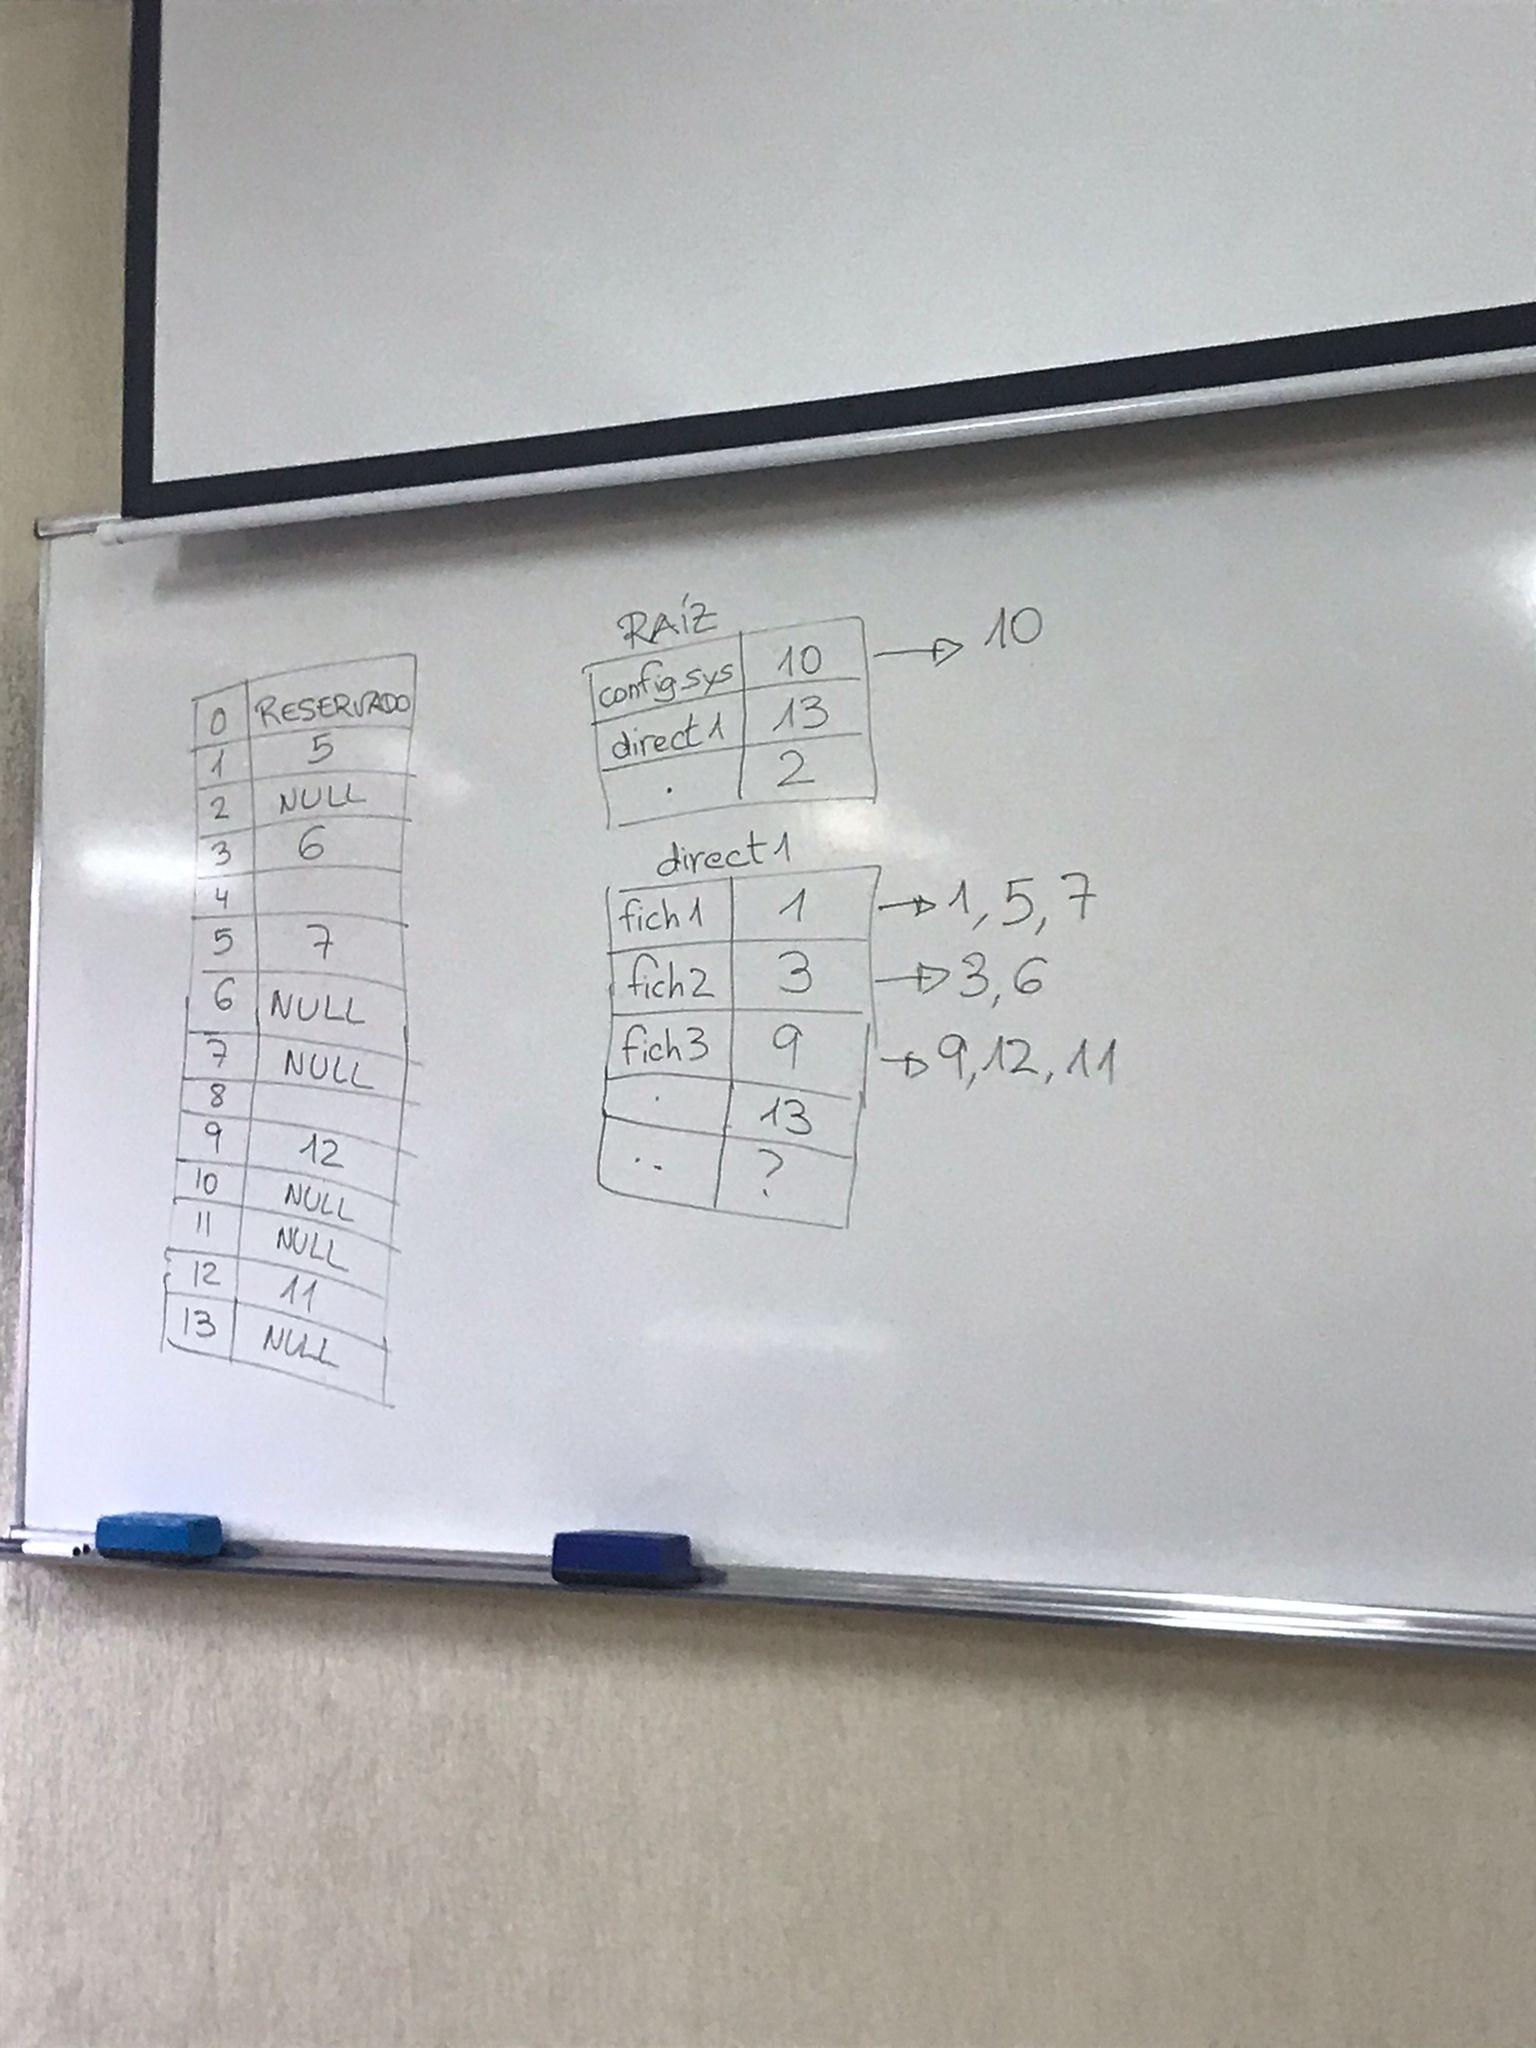 0 RESERVADO
1 5
2 NULL
3 6
4
5 7
6 NULL
7 NULL
8
9 12
10 NULL
11 NULL
12 11
13 NULL
RAÍZ
config.sys 10 → 10
direct1 13
. 2
direct1
fich1 1 → 1, 5, 7
fich2 3 → 3, 6
fich3 9 → 9, 12, 11
. 13
.. ?